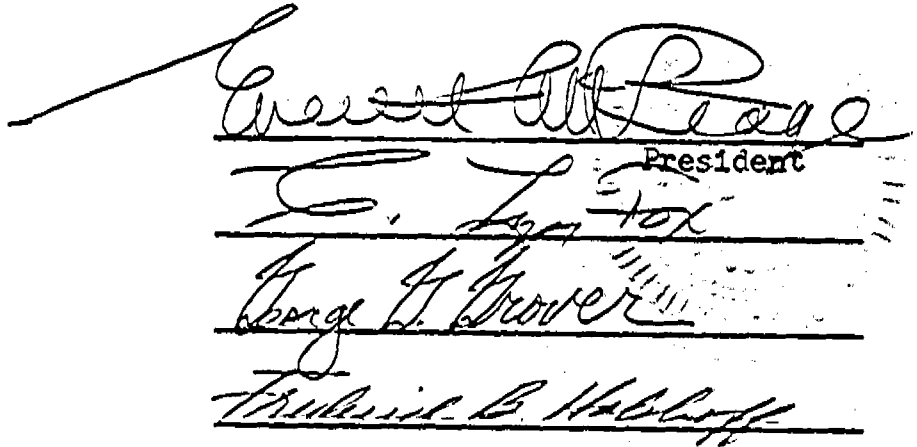 Everett McKeage
President
C. Lyn Fox
George G. Grover
Frederick B. Holoboff